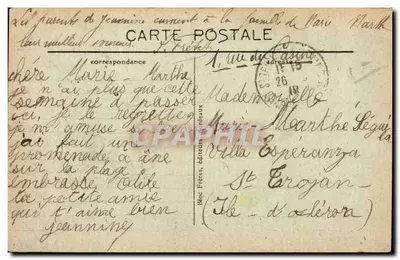 Les parents de Jeannine envoient à la famille de Marie Marthe
leur meilleur souvenir.
CARTE POSTALE
correspondance
adresse
1, rue du Casino
chère Marie-Marthe
je n'ai plus que cette
semaine à passer
ici, je le regrette
je m'amuse
j'ai fait un
promenade à âne
sur la plage
embrasse Odile
ta petite amie
qui t'aime bien
jeannine
Bloc Frères, éditeurs, Bordeaux
11-15
26
Mademoiselle
Marie Marthe
Villa Esperanza
St Trojan
(Ile d'oléron)
CPArama.com